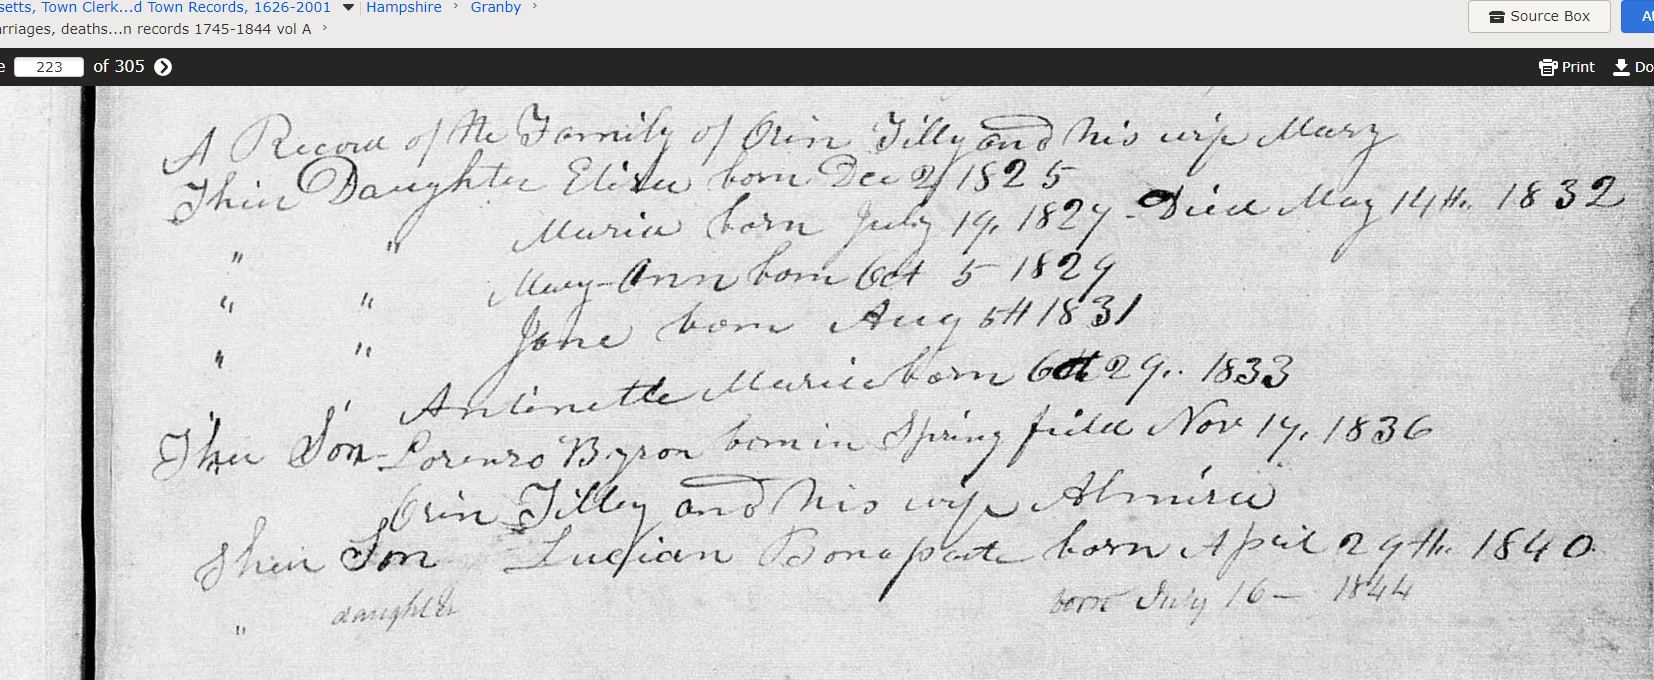 setts, Town Clerk...d Town Records, 1626-2001 Hampshire › Granby ›
rriages, deaths...n records 1745-1844 vol A ›
Source Box
At
e 223 of 305
Print
Do
A Record of the Family of Orin Tilly and his wife Mary
Their Daughter Eliza born Dec 2 1825
" " Maria born July 19, 1827 - Died May 14th. 1832
" " Mary-Ann born Oct 5 1829
" " Jane born Aug 5th 1831
" " Antinette Maria born Oct 29.. 1833
Their Son - Lorenzo Byron born in Springfield Nov 17, 1836
Orin Tilley and his wife Almira
Their Son Lucian Bonaparte born April 29th. 1840
" daughter born July 16 - 1844